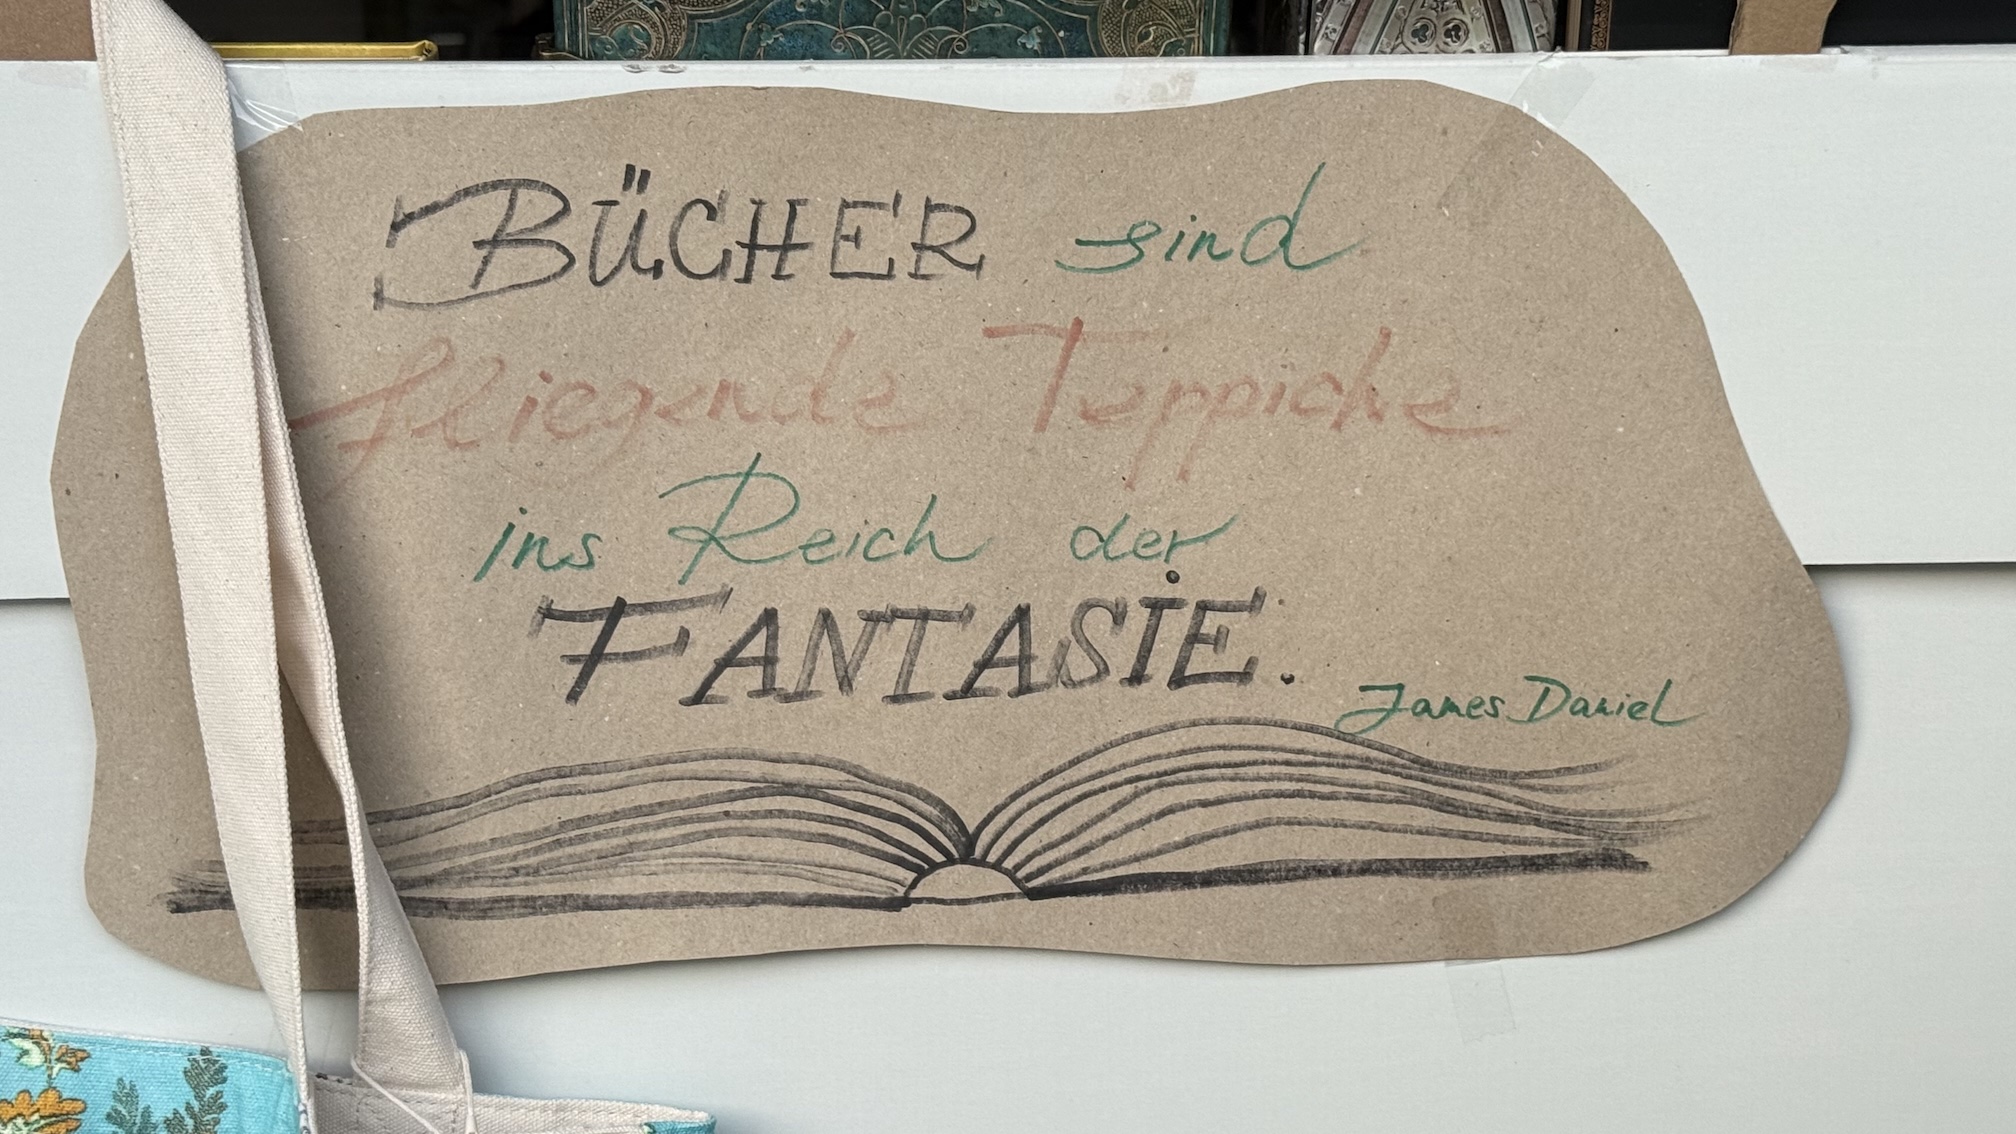 BÜCHER sind
fliegende Teppiche
ins Reich der
FANTASIE.
James Daniel